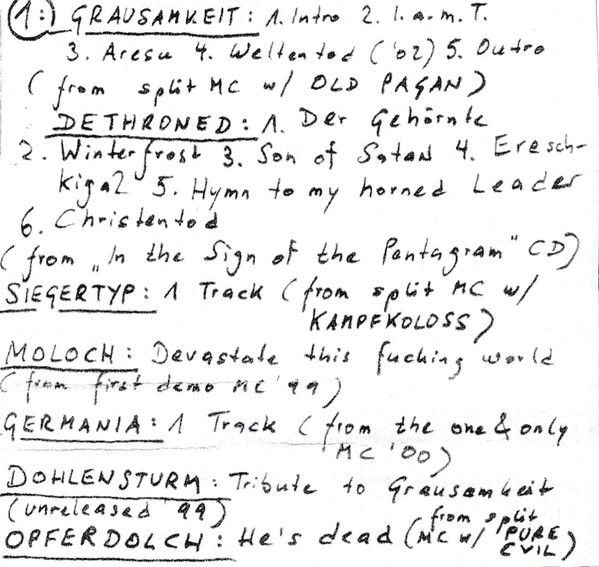 1:) GRAUSAMKEIT: 1. Intro 2. I.a.m.T.
3. Aresu 4. Weltentod ('02) 5. Outro
(from split MC w/ OLD PAGAN)
DETHRONED: 1. Der Gehörnte
2. Winterfrost 3. Son of Satan 4. Eresch-
kigal 5. Hymn to my horned Leader
6. Christentod
(from „In the Sign of the Pentagram" CD)
SIEGERTYP: 1 Track (from split MC w/
KAMPFKOLOSS)
MOLOCH: Devastate this fucking world
(from first demo MC '99)
GERMANIA: 1 Track (from the one & only
MC '00)
DOHLENSTURM: Tribute to Grausamkeit
(unreleased '99)
OPFERDOLCH: He's dead (from split
MC w/ PURE
EVIL)